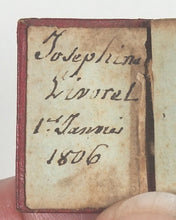 Josephine
Vivorel
1r Janvis
1806